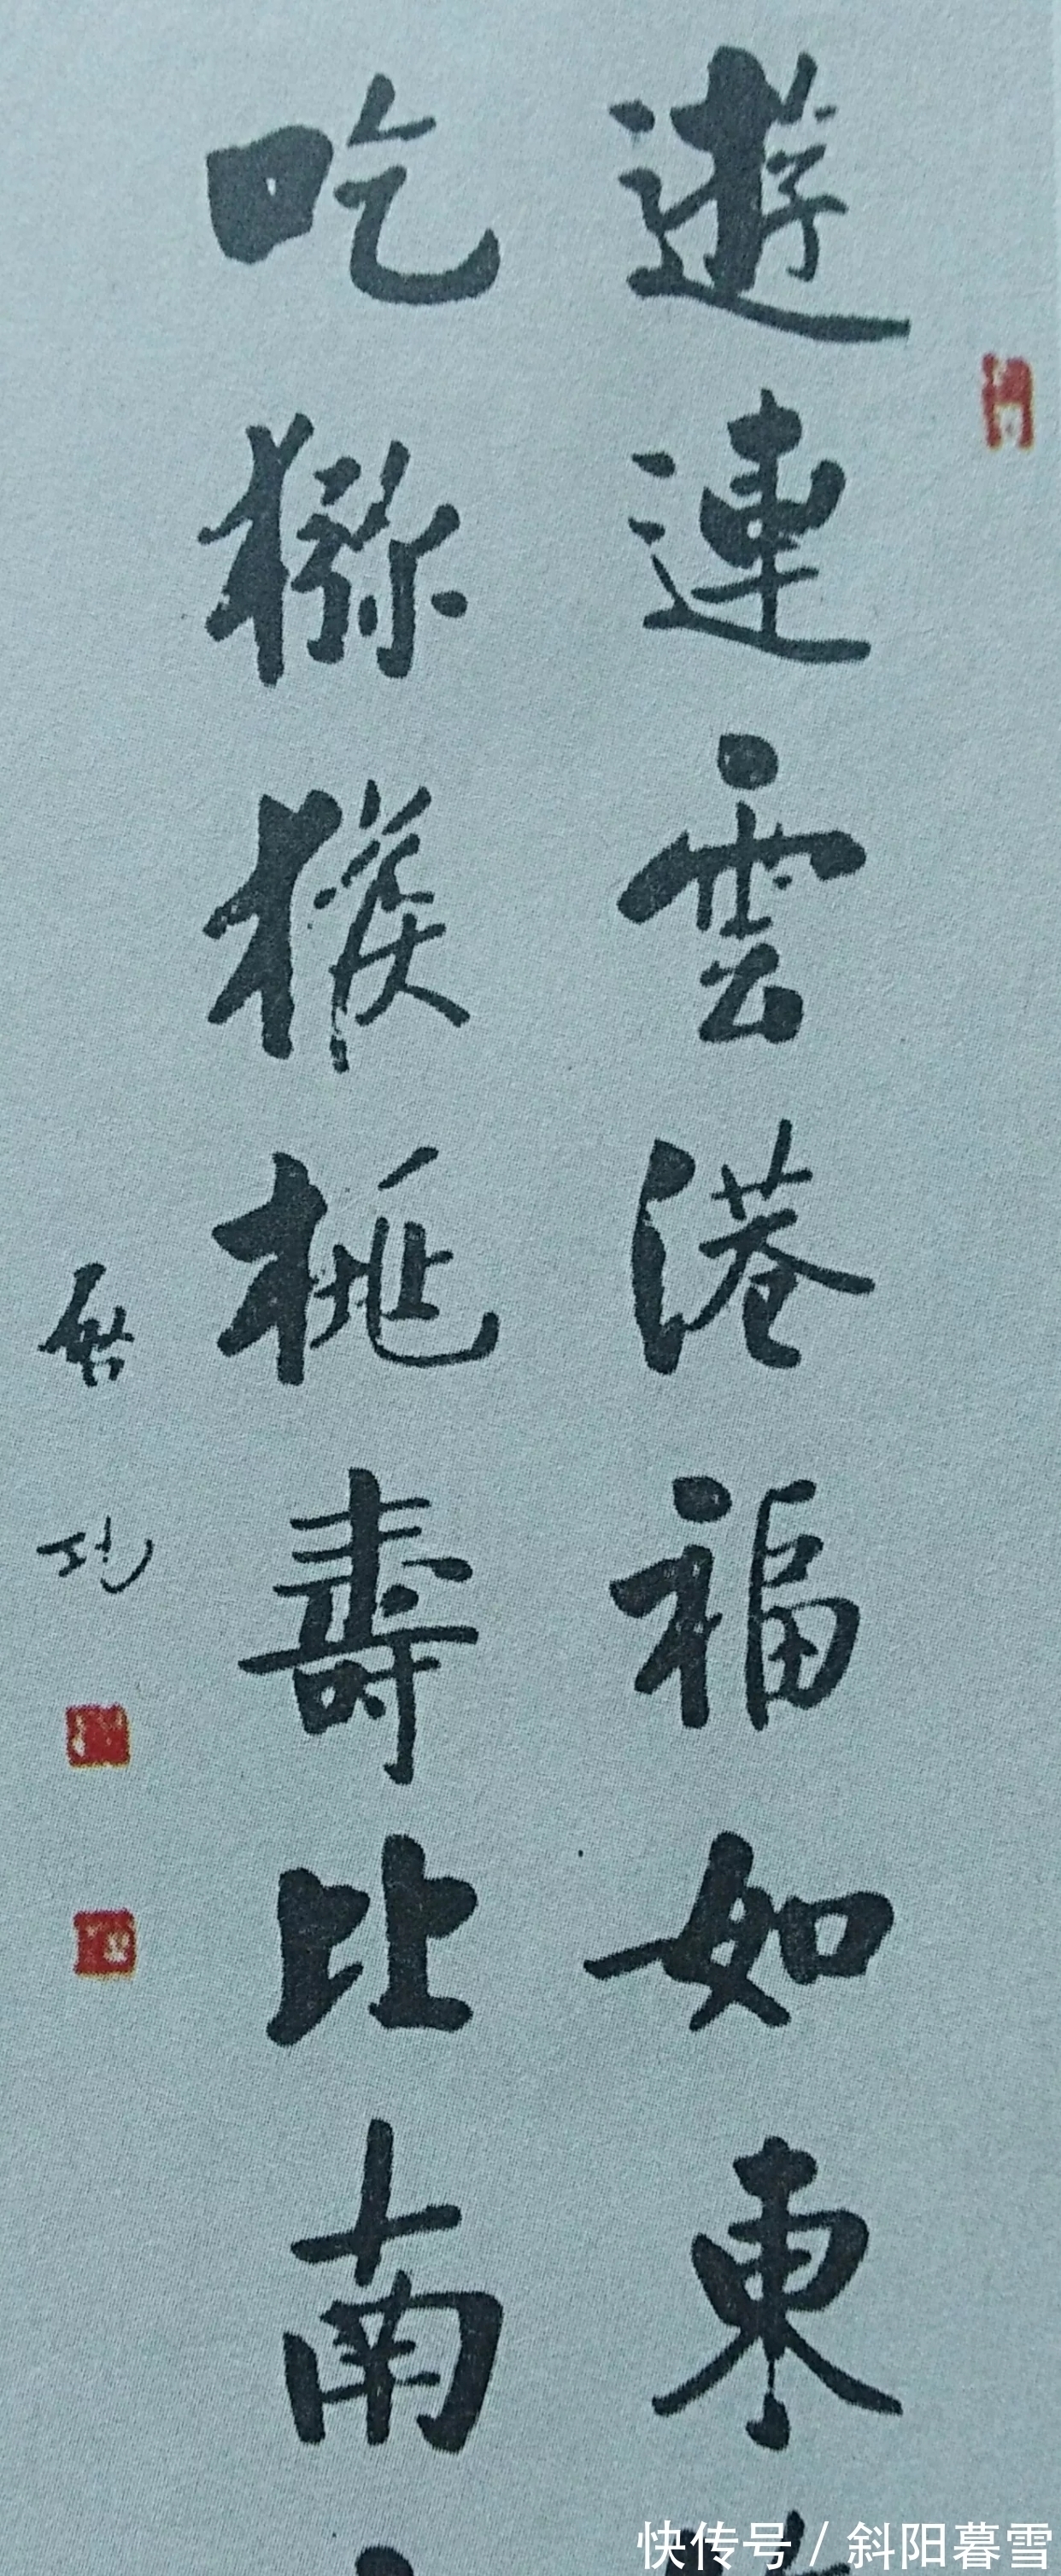 遊連雲港福如東
吃猕猴桃壽比南
啓功
快传号/斜阳暮雪